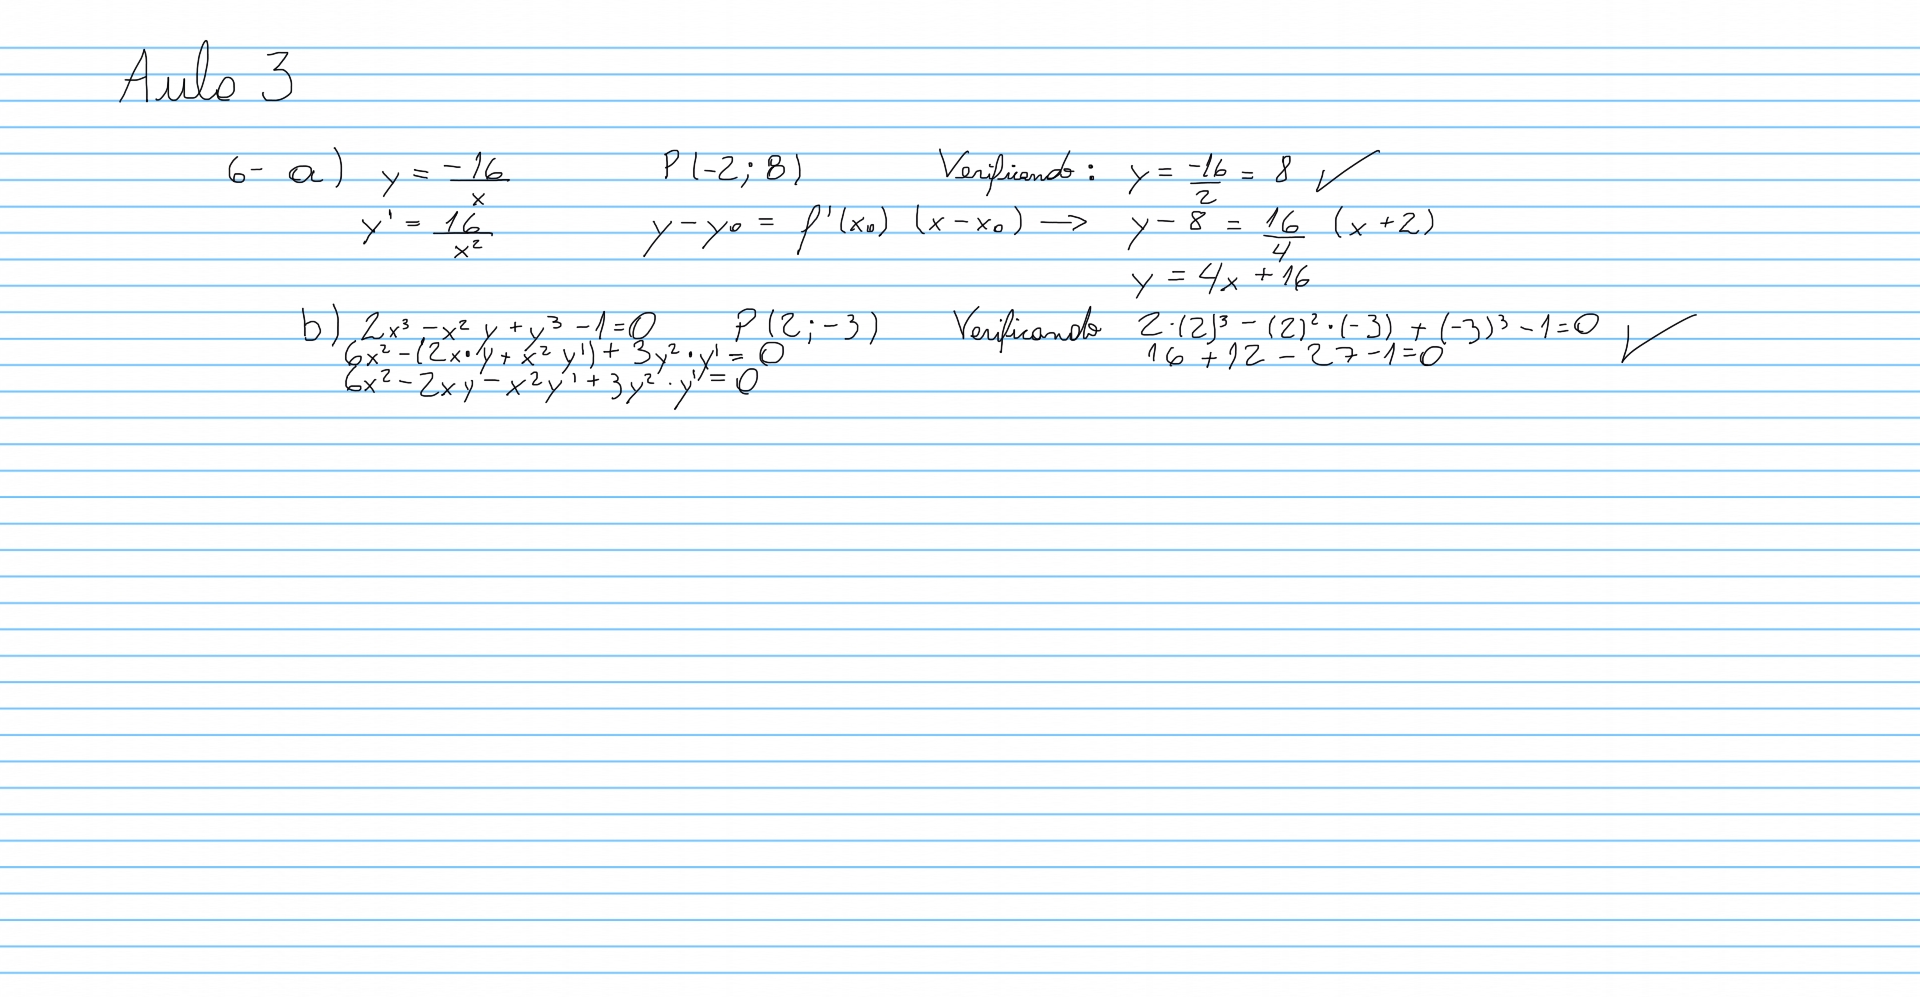 Aula 3
6- a) y = -16/x P(-2; 8) Verificando: y = -16/2 = 8 ✓
y' = 16/x² y - y₀ = f'(x₀) (x - x₀) → y - 8 = 16/4 (x + 2)
y = 4x + 16
b) 2x³ - x² y + y³ - 1 = 0 P(2; -3) Verificando 2·(2)³ - (2)²·(-3) + (-3)³ - 1 = 0 ✓
6x² - (2x·y + x² y') + 3y²·y' = 0 16 + 12 - 27 - 1 = 0
6x² - 2xy - x²y' + 3y²·y' = 0